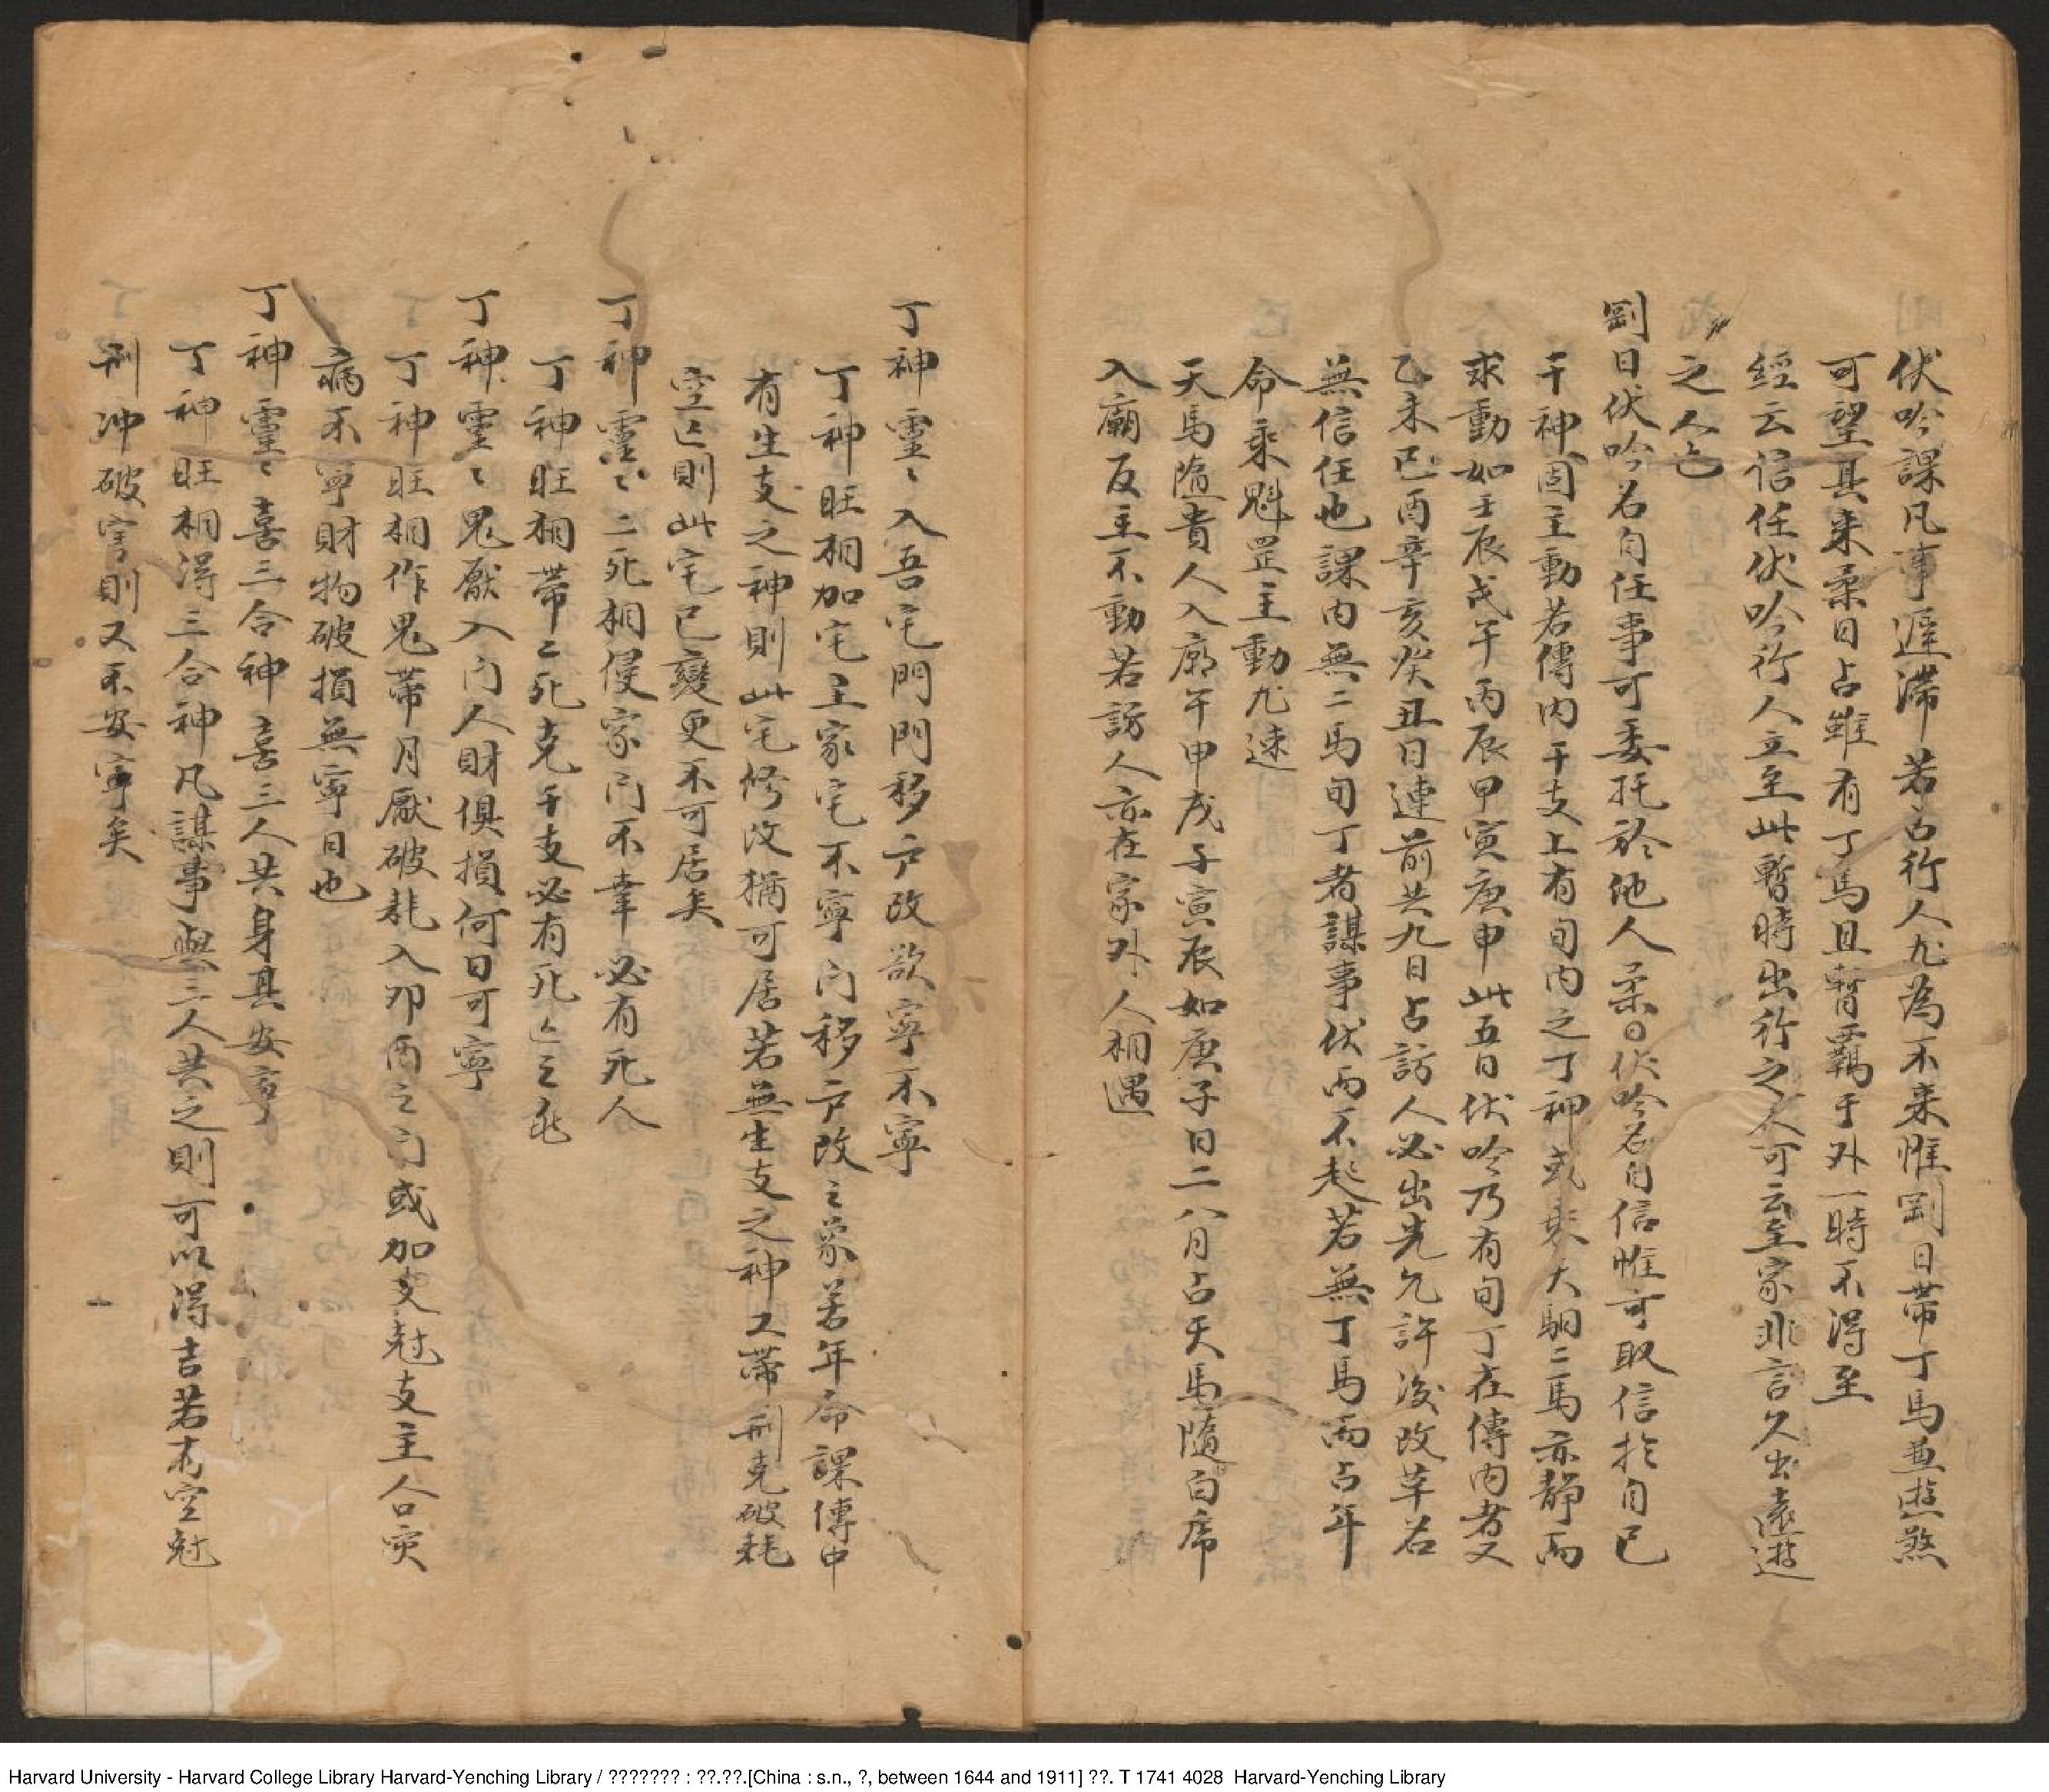 伏吟課凡事遲滯若占行人尤為不来惟剛日帶丁馬並遊煞
可望其来柔日占雖有丁馬且暫羈于外一時不得至
經云信任伏吟行人立至此暫時出行之人可云至家非言久出遠遊
之人也
剛日伏吟名自任事可委托於他人柔日伏吟名自信惟可取信扵自已
干神固主動若傳内干支上有旬内之丁神或乘天馹二馬亦静而
求動如壬辰戊午丙辰甲寅庚申此五日伏吟乃有旬丁在傳内者又
乙未已酉辛亥癸丑日連前共九日占訪人必出先允許後改革若
無信任也課内無二馬旬丁者謀事伏而不起若無丁馬而占年
命乘魁罡主動尤速
天馬隨貴人入廟午申戌子寅辰如庚子日二八月占天馬隨白虎
入廟反主不動若訪人亦在家外人相遇
丁神靈〻入吾宅門門移户改欲寧不寧
丁神旺相加宅主家宅不寧门移户改之象若年命課傳中
有生支之神則此宅修改猶可居若無生支之神又帶刑克破耗
空亡則此宅已變更不可居矣
丁神靈〻二死相侵家门不幸必有死人
丁神旺相帶二死克干支必有死亡之乱
丁神靈〻鬼厭入门人財俱損何日可寧
丁神旺相作鬼帶月厭破耗入卯酉之门或加支尅支主人口灾
病不寧財物破損無寧日也
丁神靈〻喜三合神喜三人共身其安亨
丁神旺相得三合神凡謀事與三人共之則可以得吉若有空尅
刑冲破害則又不安寧矣
Harvard University - Harvard College Library Harvard-Yenching Library / ??????? : ??.??.[China : s.n., ?, between 1644 and 1911] ??. T 1741 4028  Harvard-Yenching Library